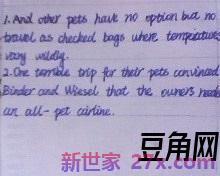 1. And other pets have no option but no
travel as checked bags where temperature
vary wildly.
2. One terrible trip for their pets convinced
Binder and Wiesel that the owners needs
an all-pet airline.
豆角网
新世家 27x.com